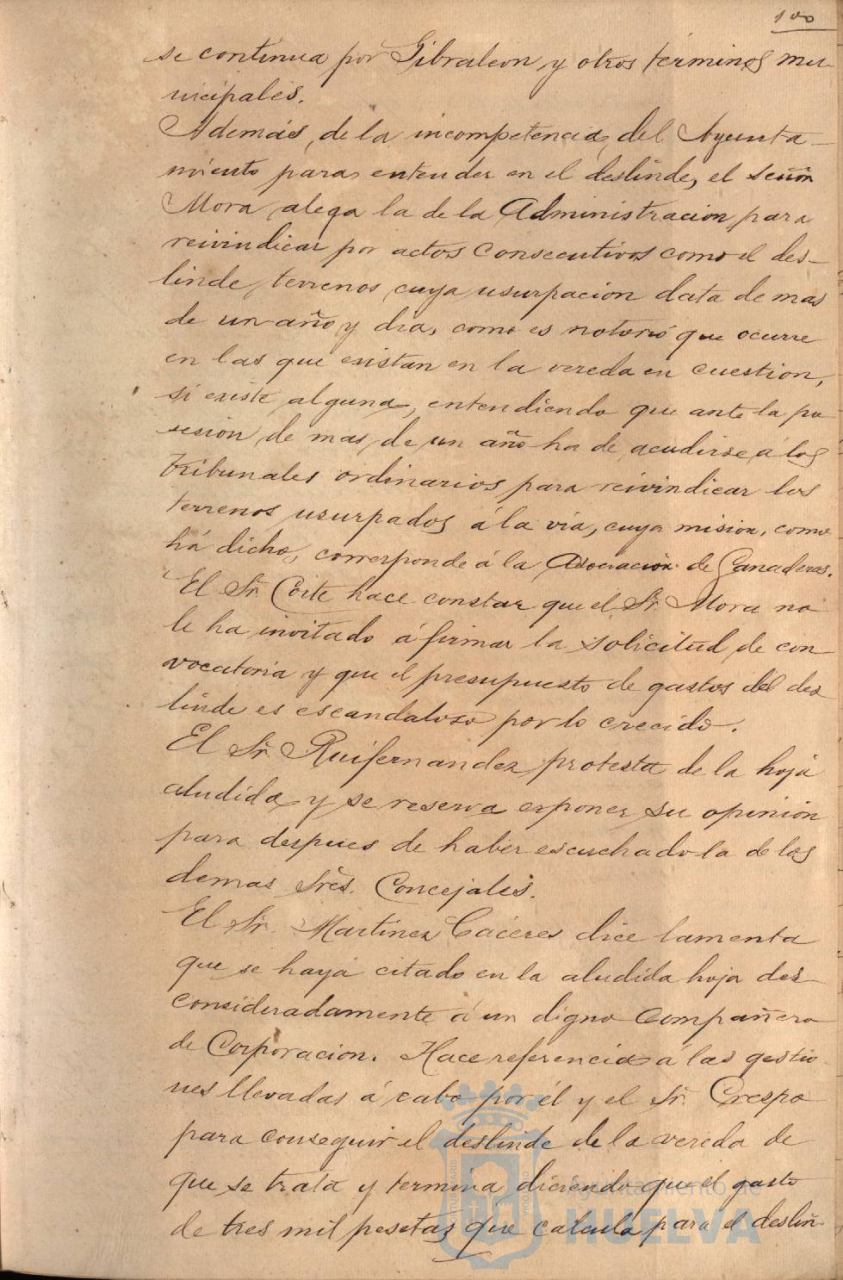 100
se continua por Gibraleon y otros términos mu-
nicipales.
Además de la incompetencia del Ayunta-
miento para entender en el deslinde, el señor
Mora alega la de la Administración para
reivindicar por actos consecutivos como el des-
linde, terrenos cuya usurpación data de mas
de un año y dia, como es notorio que ocurre
en las que existan en la vereda en cuestion,
si existe alguna, entendiendo que ante la po
sesión de mas de un año ha de acudirse á los
tribunales ordinarios para reivindicar los
terrenos usurpados á la via, cuya mision, como
há dicho, corresponde á la Asociación de Ganaderos.
El Sr. Coite hace constar que el Sr. Mora no
le ha invitado á firmar la solicitud de con-
vocatoria y que el presupuesto de gastos del des
linde es escandaloso por lo crecido.
El Sr. Ruifernandez protesta de la hoja
aludida y se reserva exponer su opinión
para despues de haber escuchado la de los
demas Sres. Concejales.
El Sr. Martinez Cáceres dice lamenta
que se haya citado en la aludida hoja des-
consideradamente á un digno compañero
de Corporación. Hace referencia á las gestio-
nes llevadas á cabo por él y el Sr. Crespo
para conseguir el deslinde de la vereda de
que se trata y termina diciendo que el gasto
de tres mil pesetas que calcula para el deslin-
Ayuntamiento de
HUELVA